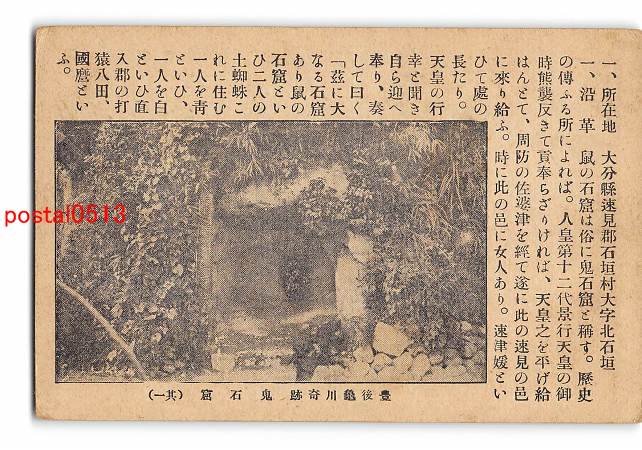 一、所在地　大分縣速見郡石垣村大字北石垣
一、沿　革　鼠の石窟は俗に鬼石窟と稱す。歷史
の傳ふる所によれば。人皇第十二代景行天皇の御
時熊襲反きて貢奉らざりければ、天皇之を平げ給
はんとて、周防の佐婆津を經て遂に此の速見の邑
に來り給ふ。時に此の邑に女人あり。速津媛とい
ひて處の
長たり。
天皇の行
幸と聞き
自ら迎へ
奉り、奏
して曰く
「茲に大
なる石窟
あり鼠の
石窟とい
ひ二人の
土蜘蛛こ
れに住む
一人を靑
といひ、
一人を白
といひ直
入郡の打
猿八田、
國麿とい
ふ。
豊後龜川奇跡　鬼石窟　（其一）
postal0513